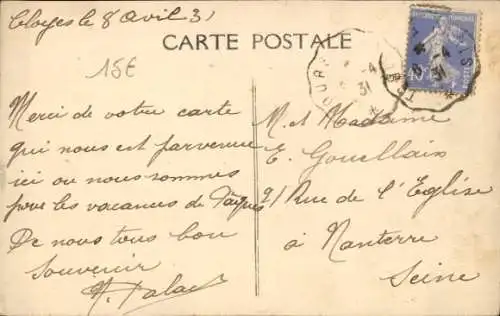 Cloyes le 8 Avril 31
CARTE POSTALE
15€
Merci de votre carte
qui nous est parvenue
ici ou nous sommes
pour les vacances de Pâques
De nous tous bon
souvenir
M. et Madame
E. Gouellain
21 Rue de l'Eglise
à Nanterre
Seine